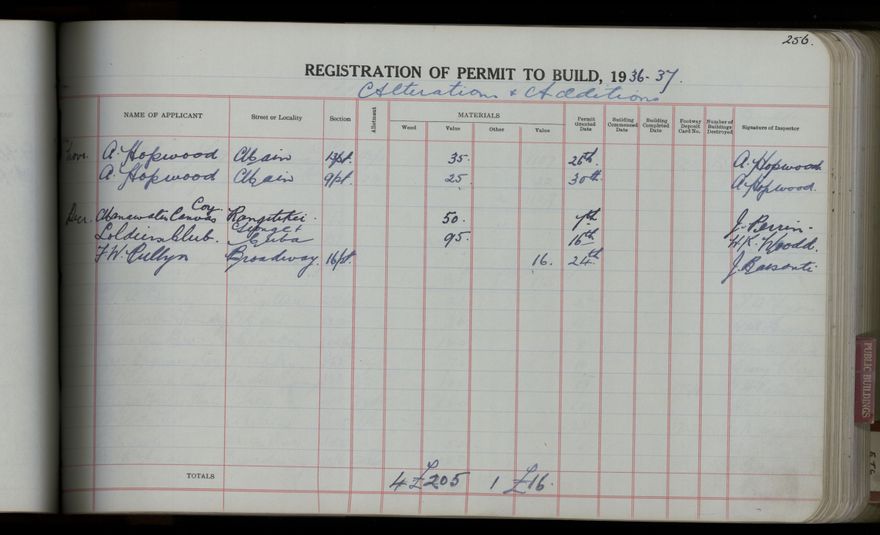 256.
REGISTRATION OF PERMIT TO BUILD, 1936-37.
Alterations & Additions
NAME OF APPLICANT Street or Locality Section Allotment MATERIALS Permit Granted Date Building Commenced Date Building Completed Date Footway Deposit Card No. Number of Buildings Destroyed Signature of Inspector
Wood Value Other Value
Nov. A. Hopwood Main 13pt. 35. 26th. A. Hopwood
A. Hopwood Main 9pt. 25. 30th A. Hopwood.
Coy
Decr. Manawatu Canvas Rangitikei. 50. 7th J. Perrin.
George &
Soldiers Club. Cuba 95. 16th H.K. Wood.
F.W. Cullyn Broadway. 16pt. 16. 24th
TOTALS 4 £205 1 £16.
PUBLIC BUILDINGS